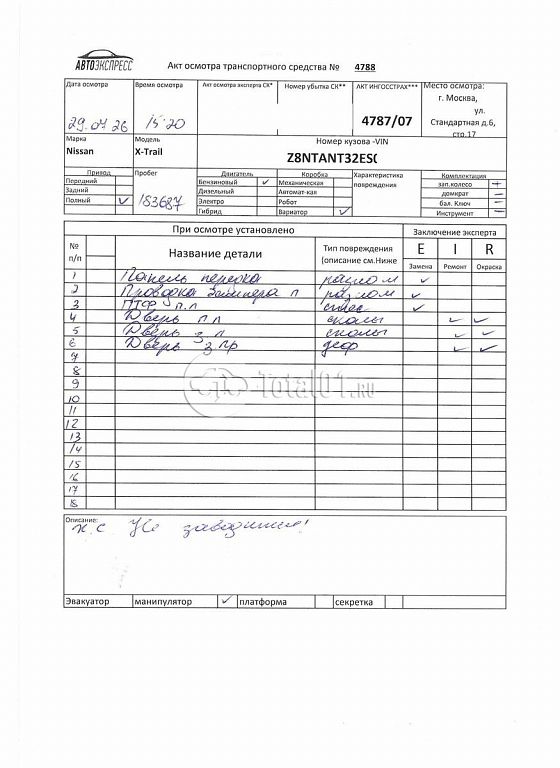 АВТОЭКСПРЕСС
Акт осмотра транспортного средства № 4788
Дата осмотра Время осмотра Акт осмотра эксперта СК* Номер убытка СК** АКТ ИНГОССТРАХ*** Место осмотра:
г. Москва,
ул.
29.07.26 15:20 4787/07 Стандартная д.6,
стр.17
Марка Модель Номер кузова -VIN
Nissan X-Trail Z8NTANT32ES(
Привод Пробег Двигатель Коробка Характеристика повреждения Комплектация
Передний Бензиновый ✓ Механическая зап.колесо +
Задний Дизельный Автомат-кая домкрат –
Полный ✓ 183687 Электро Робот бал. Ключ –
Гибрид Вариатор ✓ Инструмент –
При осмотре установлено Заключение эксперта
№ п/п Название детали Тип повреждения (описание см.Ниже E I R
Замена Ремонт Окраска
1 Панель передка разлом ✓
2 Проводка бампера п разлом ✓
3 ПТФ п.л ✓
4 Дверь п л сколы ✓ ✓
5 Дверь з л сколы ✓ ✓
6 Дверь з пр деф ✓ ✓
7
8
9
Total01.RU
10
11
12
13
14
15
16
17
18
Описание:
х.с Не заводится!
Эвакуатор манипулятор ✓ платформа секретка